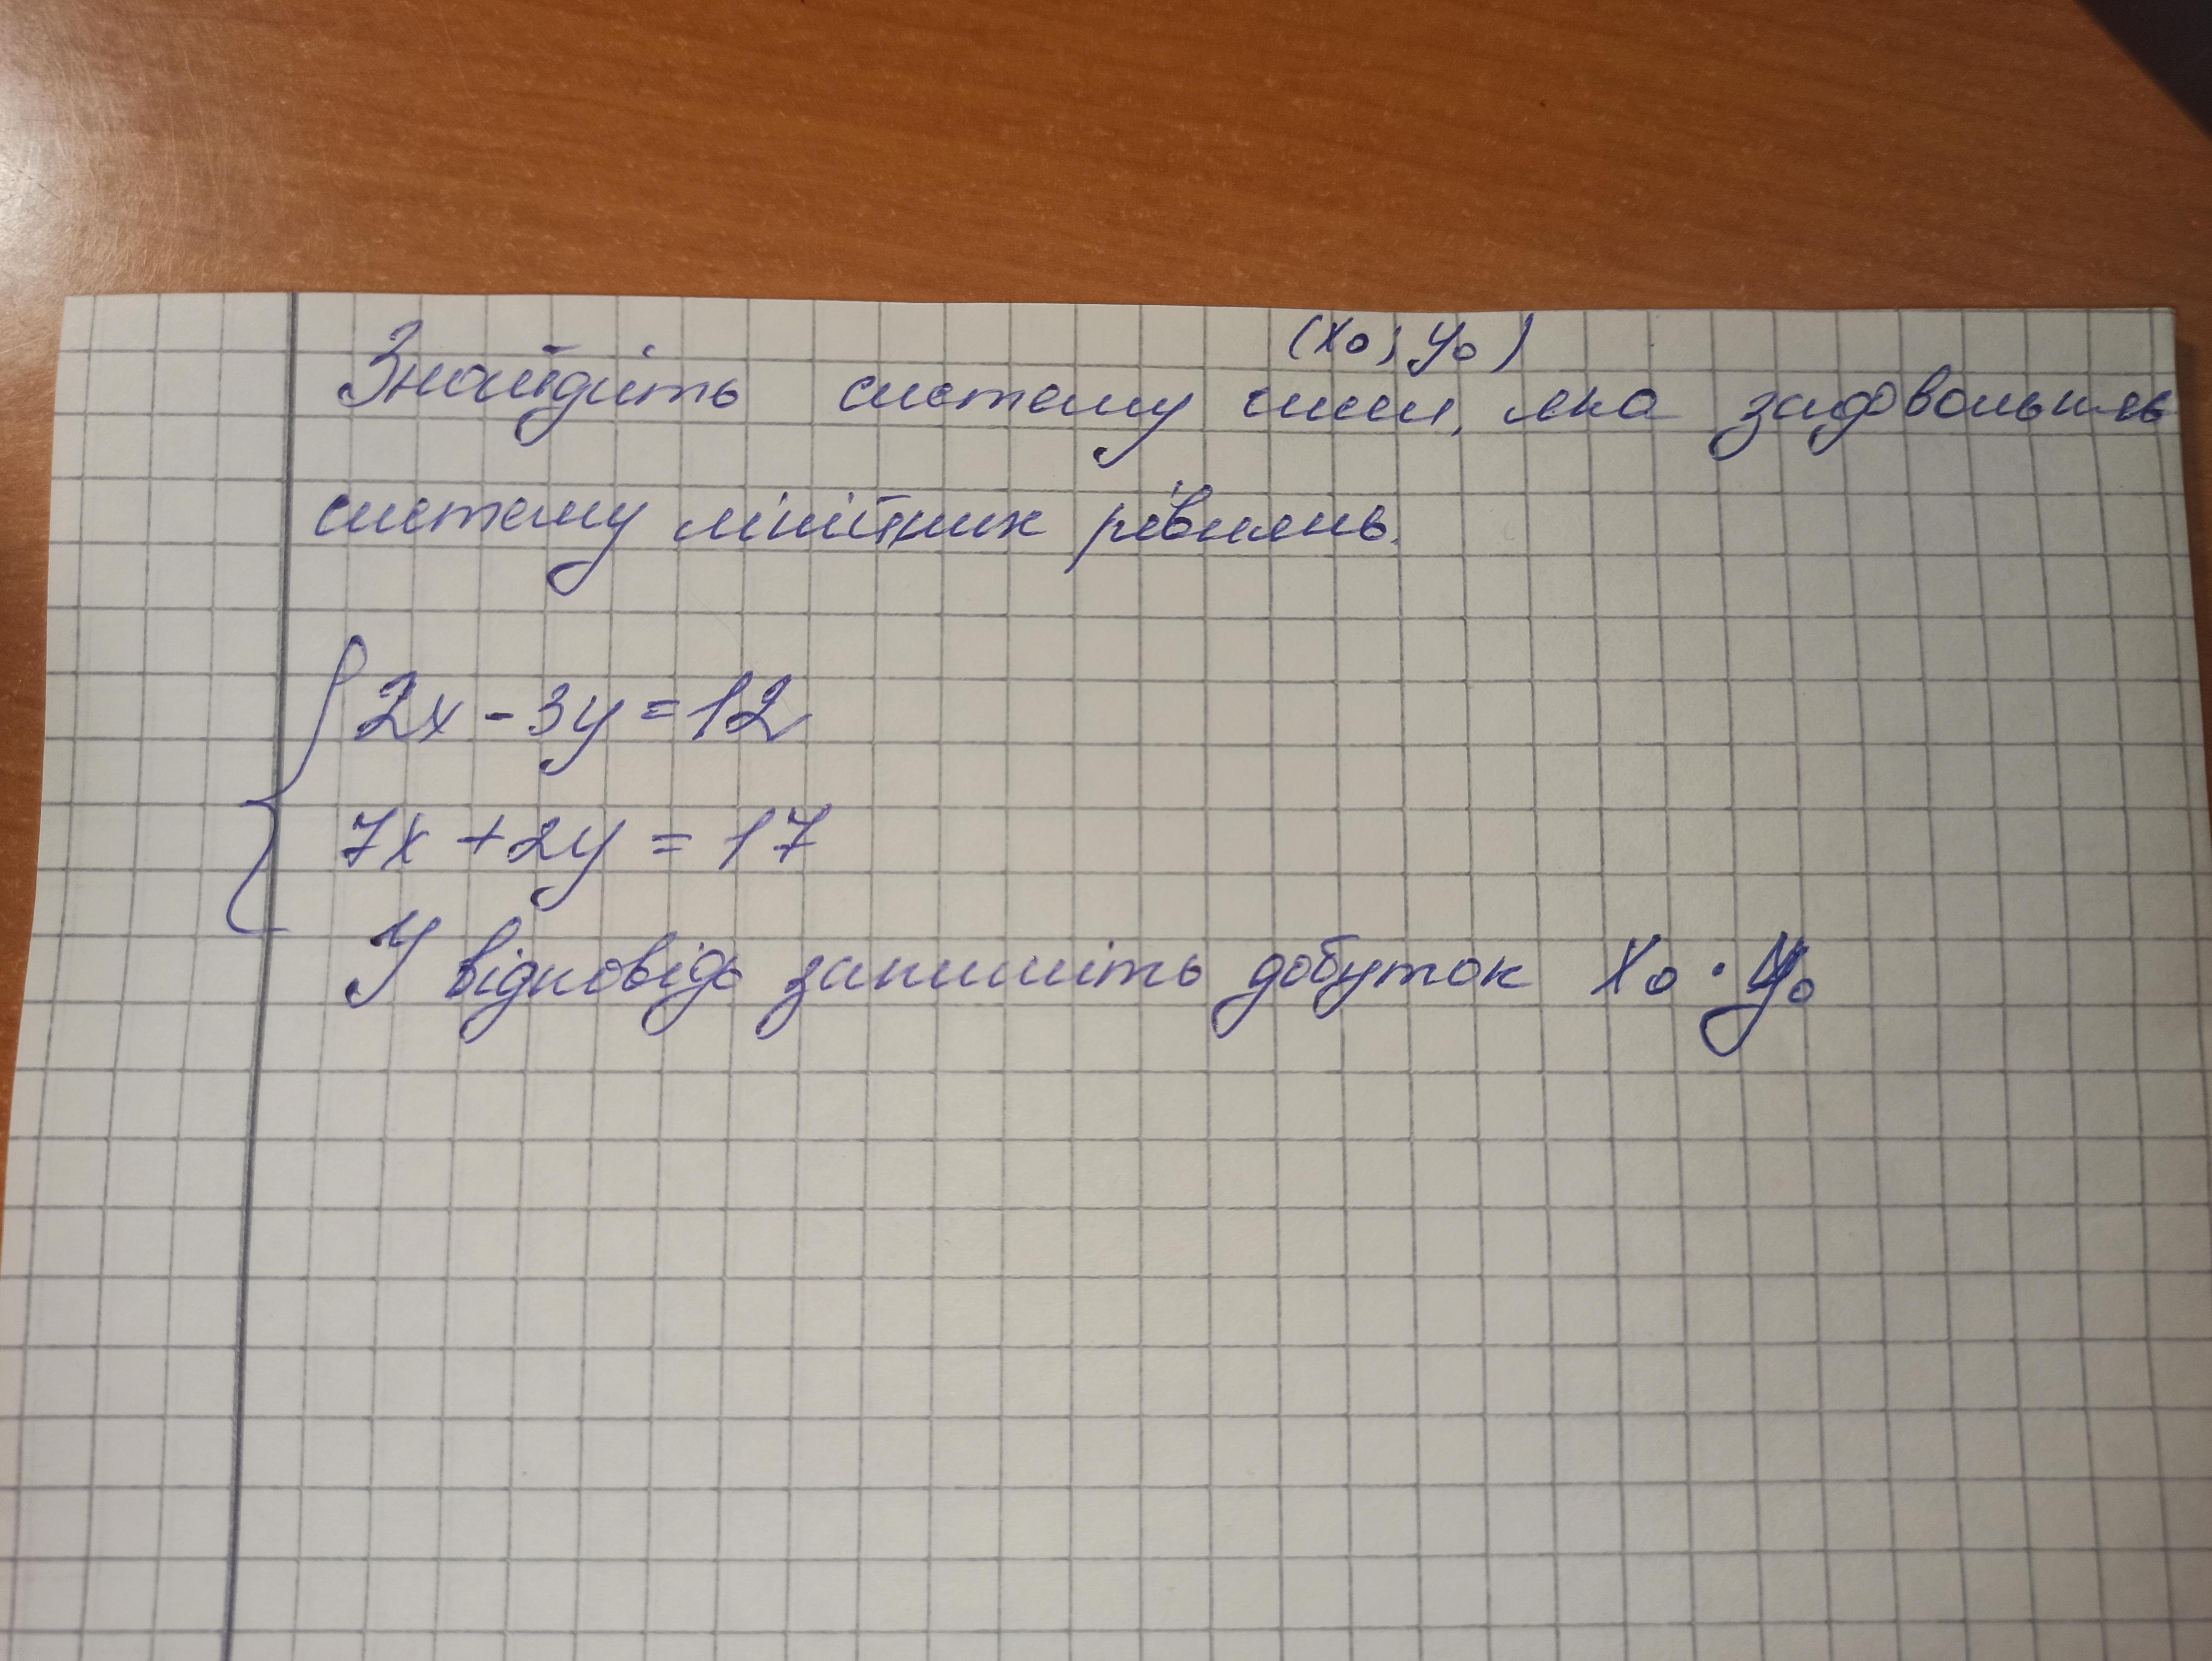 (x₀; y₀)
Знайдіть систему чисел, яка задовольняє
систему лінійних рівнянь.
2x - 3y = 12
7x + 2y = 17
У відповідь запишіть добуток x₀ · y₀